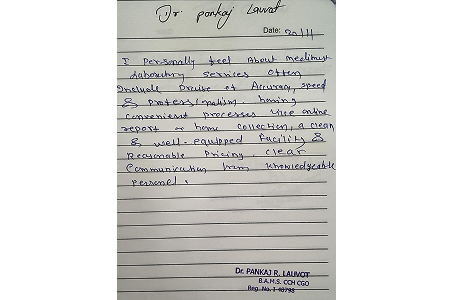 Dr Pankaj Lauvot
Date: 20/11
I Personally feel About medilinst
Laboratory Services Often
Include Praise of Accuracy, speed
& professionalism. having
convenient processes like online
report or home collection, a clean
& well-equipped facility &
Reasonable Pricing, clear
Communication from knowledgeable
personel.
Dr. PANKAJ R. LAUVOT
B.A.M.S. CCH CGO
Reg. No. I-40798